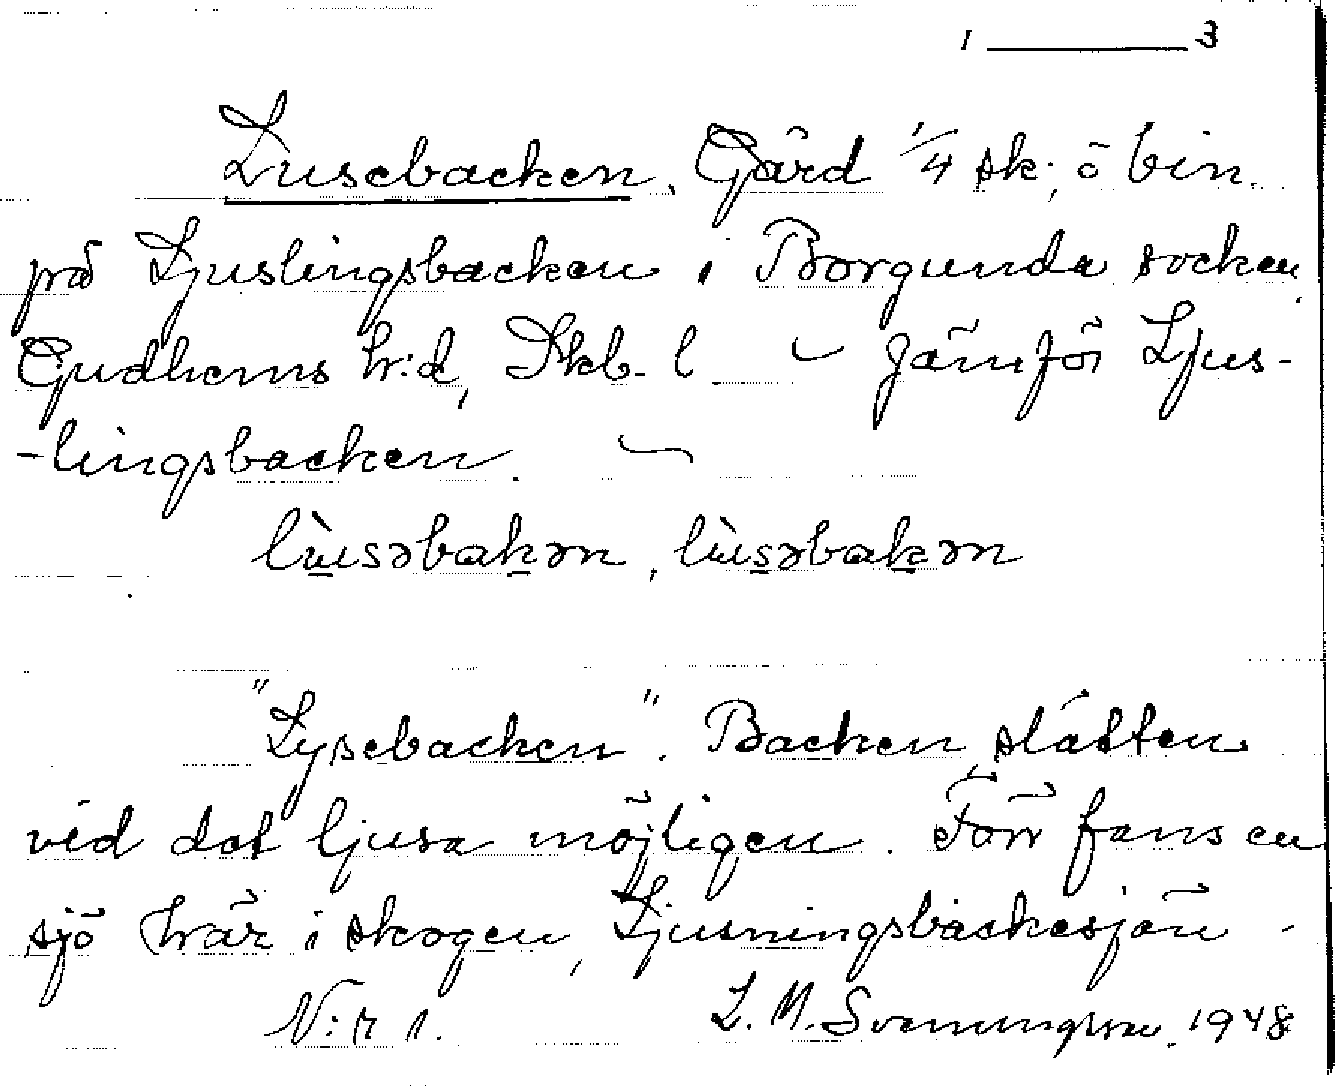 1 ——— 3
Lusebacken. Gård 1/4 sk; ö bin.
på Ljuslingsbacken i Borgunda socken,
Gudhems hr:d, Skb. l. – Jämför Ljus-
-lingsbacken. –
lùsəbakən, lùsəbakən
"Lysebacken". Backen, slätten
vid det ljusa möjligen. Förr fans en
sjö här i skogen, Ljusningsbackesjön -
N:r 1. L. M. Svenungsson. 1948